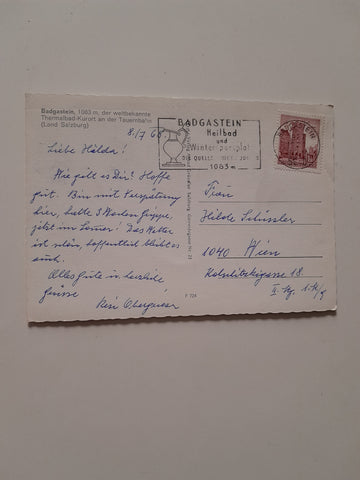 Badgastein, 1083 m, der weltbekannte
Thermalbad-Kurort an der Tauernbahn
(Land Salzburg)
8./7 68.
Liebe Hilda!
Wie geht es Dir? Hoffe
gut. Bin mit Verspätung
hier, hatte 3 Wochen Grippe,
jetzt im Sommer! Das Wetter
ist schön, hoffentlich bleibt es
auch.
Alles Gute u. herzliche
Grüsse
BADGASTEIN
Heilbad
und
Wintersportplatz
DIE QUELLE
1083 m
BADGASTEIN
Frau
Hilde Schüssler
1040 Wien
18.
P 724